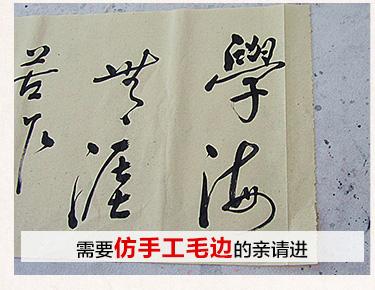 學海
無涯
苦
需要仿手工毛边的亲请进